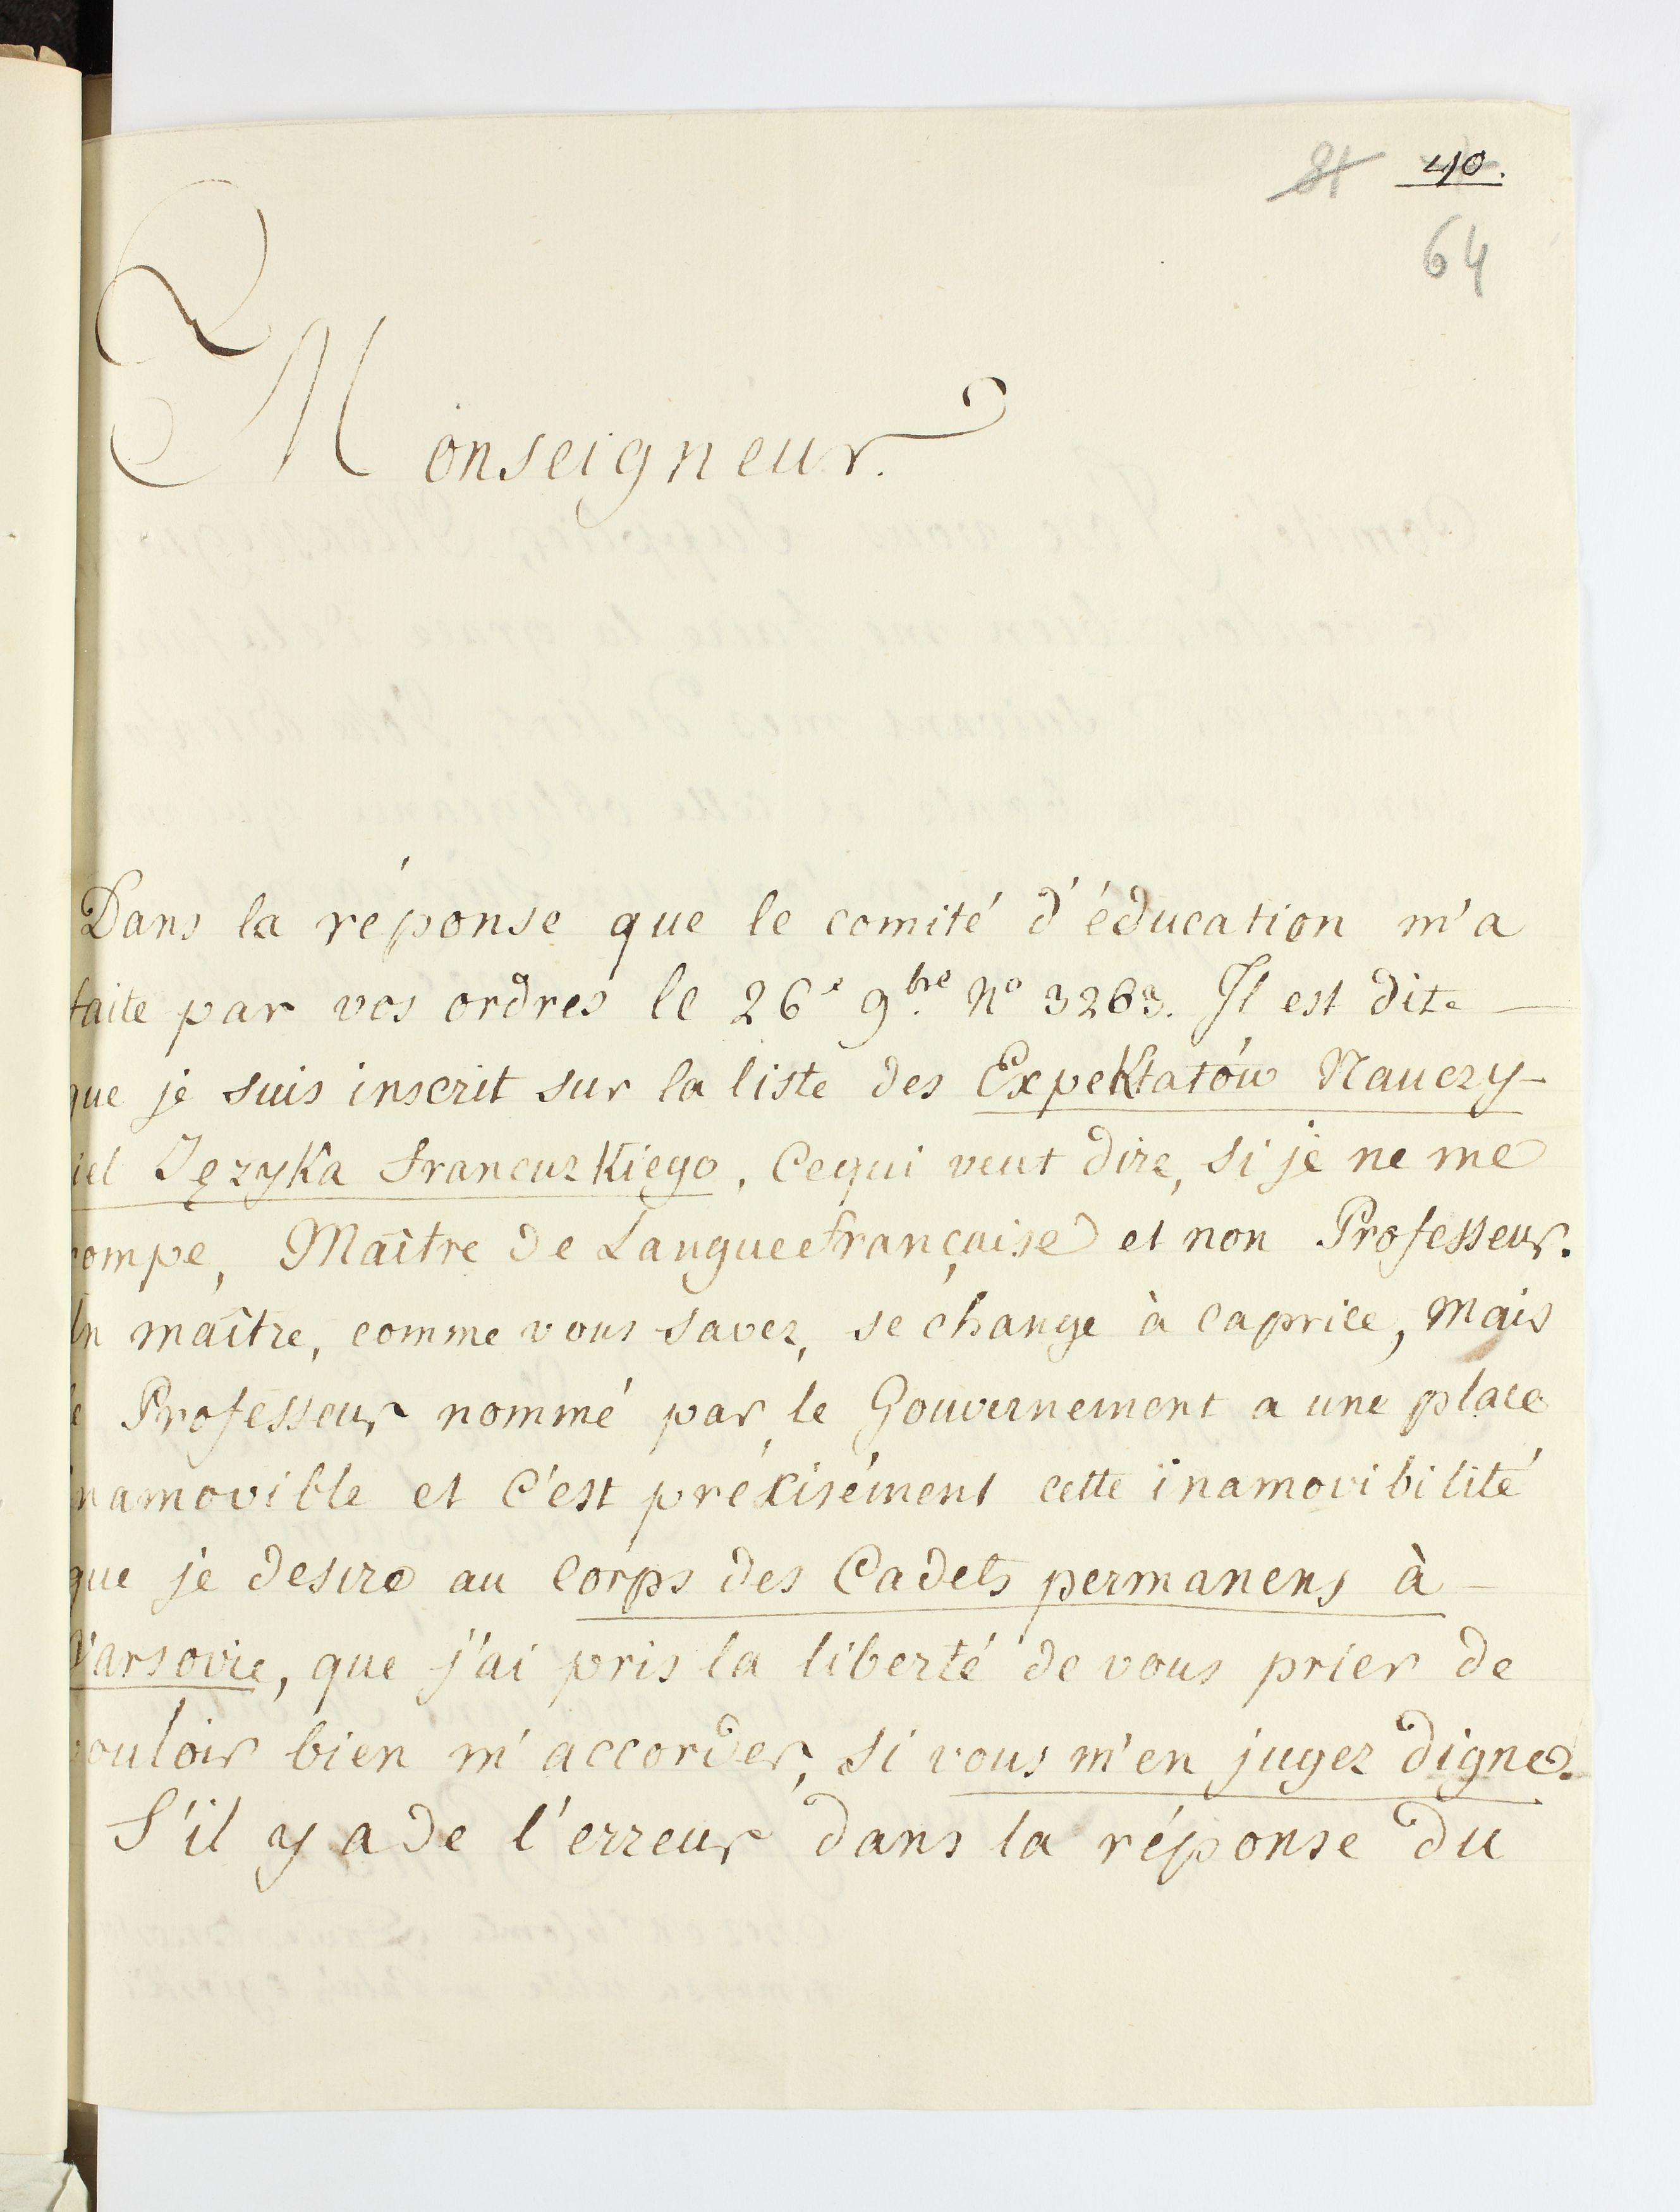 81 40.
64
Monseigneur.
Dans la réponse que le comité d'éducation m'a
faite par vos ordres le 26e 9bre No 3263. Il est dite
que je suis inscrit sur la liste des Expektatów Nauczy-
iel Języka francuzkiego. Cequi veut dire, si je ne me
rompe, Maître de Langue française et non Professeur.
Un maître, comme vous savez, se change à caprice, mais
le Professeur nommé par le Gouvernement a une place
inamovible et c'est précisément cette inamovibilité
que je desire au Corps des Cadets permanens à
Varsovie, que j'ai pris la liberté de vous prier de
vouloir bien m'accorder, si vous m'en jugez digne.
S'il y a de l'erreur dans la réponse du